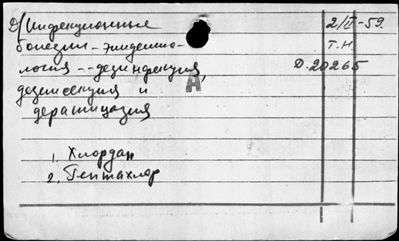 Д/ Инфекционные
болезни - эпидемио-
логия -- дезинфекция,
дезинсекция и
дератизация
1. Хлордан
2. Гептахлор
2/II - 59.
Т.Н
D.20265
А